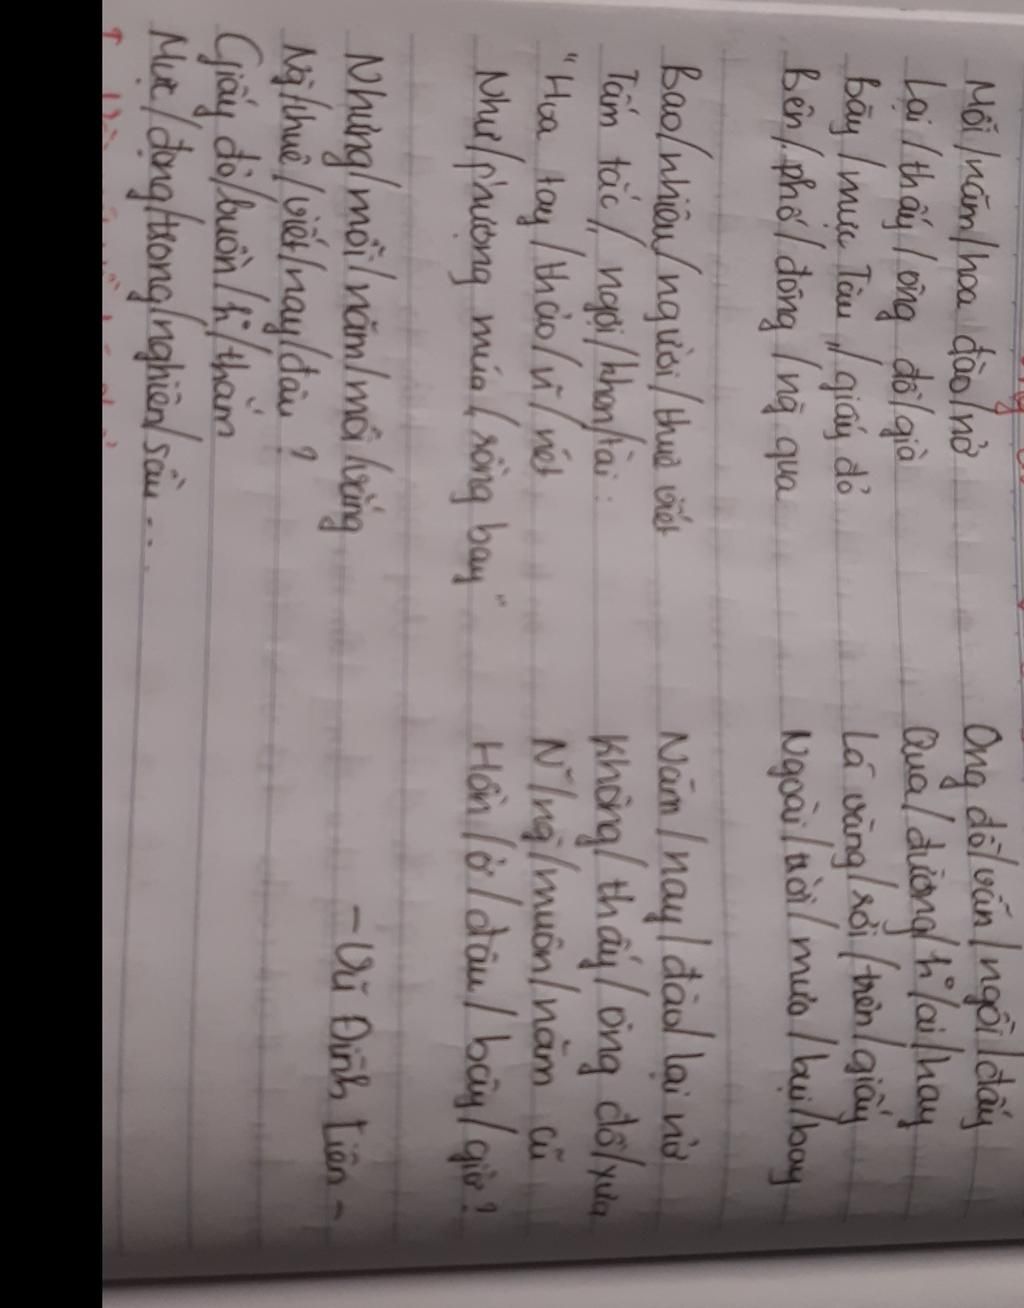 Mỗi/năm/hoa đào/nở
Lại/thấy/ông đồ/già
Bày/mực Tàu/giấy đỏ
Bên/phố/đông/ng qua
Bao/nhiêu/người/thuê viết
Tấm tắc/ngợi/khen/tài:
"Hoa tay/thảo/n~/nét
Như/phượng múa/rồng bay"
Nhưng/mỗi/năm/mỗi/vắng
Ng/thuê/viết/nay/đâu?
Giấy đỏ/buồn/k°/thắm
Mực/đọng/trong/nghiên/sầu...
Ông đồ/vẫn/ngồi/đấy
Qua/đường/k°/ai/hay
Lá vàng/rơi/trên/giấy
Ngoài/trời/mưa/bụi/bay
Năm/nay/đào/lại nở
Không/thấy/ông đồ/xưa
N~/ng/muôn/năm cũ
Hồn/ở/đâu/bây/giờ?
- Vũ Đình Liên -